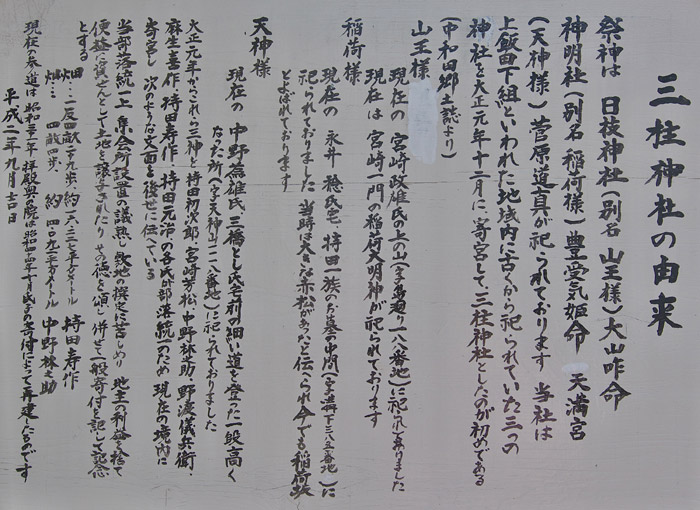 三柱神社の由来
祭神は 日枝神社(別名 山王様)大山咋命
神明社(別名 稲荷様)豊受気姫命 天満宮
(天神様)菅原道真が祀られております 当社は
上飯田下組といわれた地域内に古くから祀られていた三つの
神社を大正元年十二月に、寄宮して三柱神社としたのが初めである
(中和田郷土誌より)
山王様
現在の 宮崎政雄氏の上の山(字 廻り一八八番地)に祀られありました
現在は 宮崎一門の稲荷大明神が祀られております
稲荷様
現在の 永井 稔氏宅、持田一族のお墓の中間(字 下三八五番地)に
祀られておりました 当時は大きな赤松があったと伝えられ今でも稲荷松
とよばれております
天神様
現在の 中野 雄氏、三橋とし氏宅前の細い道を登った一段高く
なった所(字天神山一二八番地)に祀られておりました
大正元年からこれら三神を持田初次郎、宮崎芳松、中野林之助、野渡儀兵衛、
麻生喜作、持田寿作、持田元治の各氏が部落統一のため 現在の境内に
寄宮し 次のような文面を後世に伝えている
当部落統一上 集会所設置の議熟し 敷地の撰定に苦しめり 地主の利益を捨て
便益に資せんとして土地を譲与されたり その徳を頌し 併せて一般寄付を記して記念
とする
畑…二反四畝二十九歩、約二六、三七平方メートル 持田寿作
畑… 四畝四歩、 約 四〇九平方メートル 中野林之助
現在の参道は昭和三十二年 拝殿奥の院は昭和四十四年十月氏子の寄付によって再建したものです
平成二年九月吉日